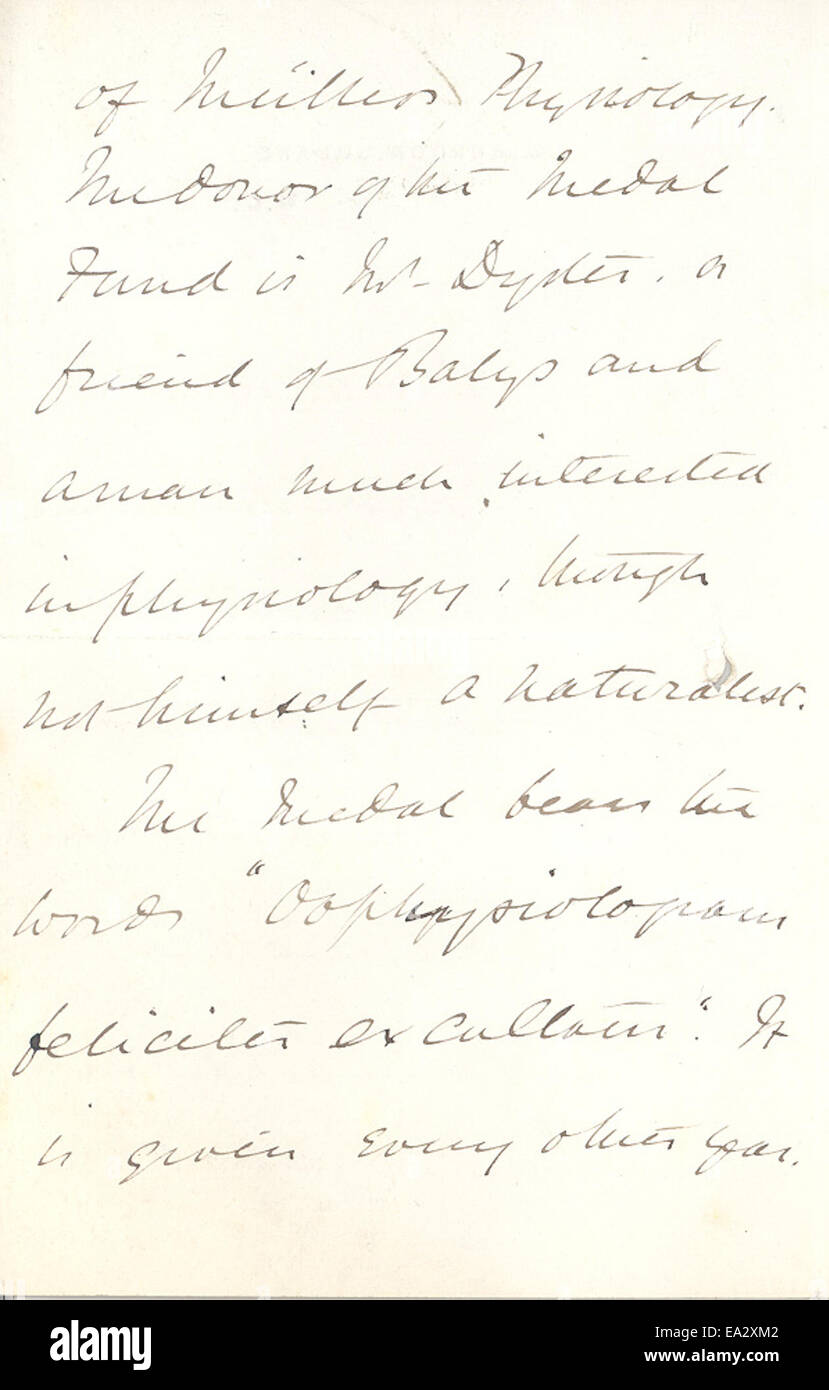 of Müllers Physiology.
The donor of the Medal
Fund is Mr Dyster. a
friend of Balys and
a man much interested
in physiology, though
not himself a naturalist.
The Medal bears the
words "Ob physiologiam
feliciter excultam". It
is given every other year.
alamy
Image ID: EA2XM2
www.alamy.com